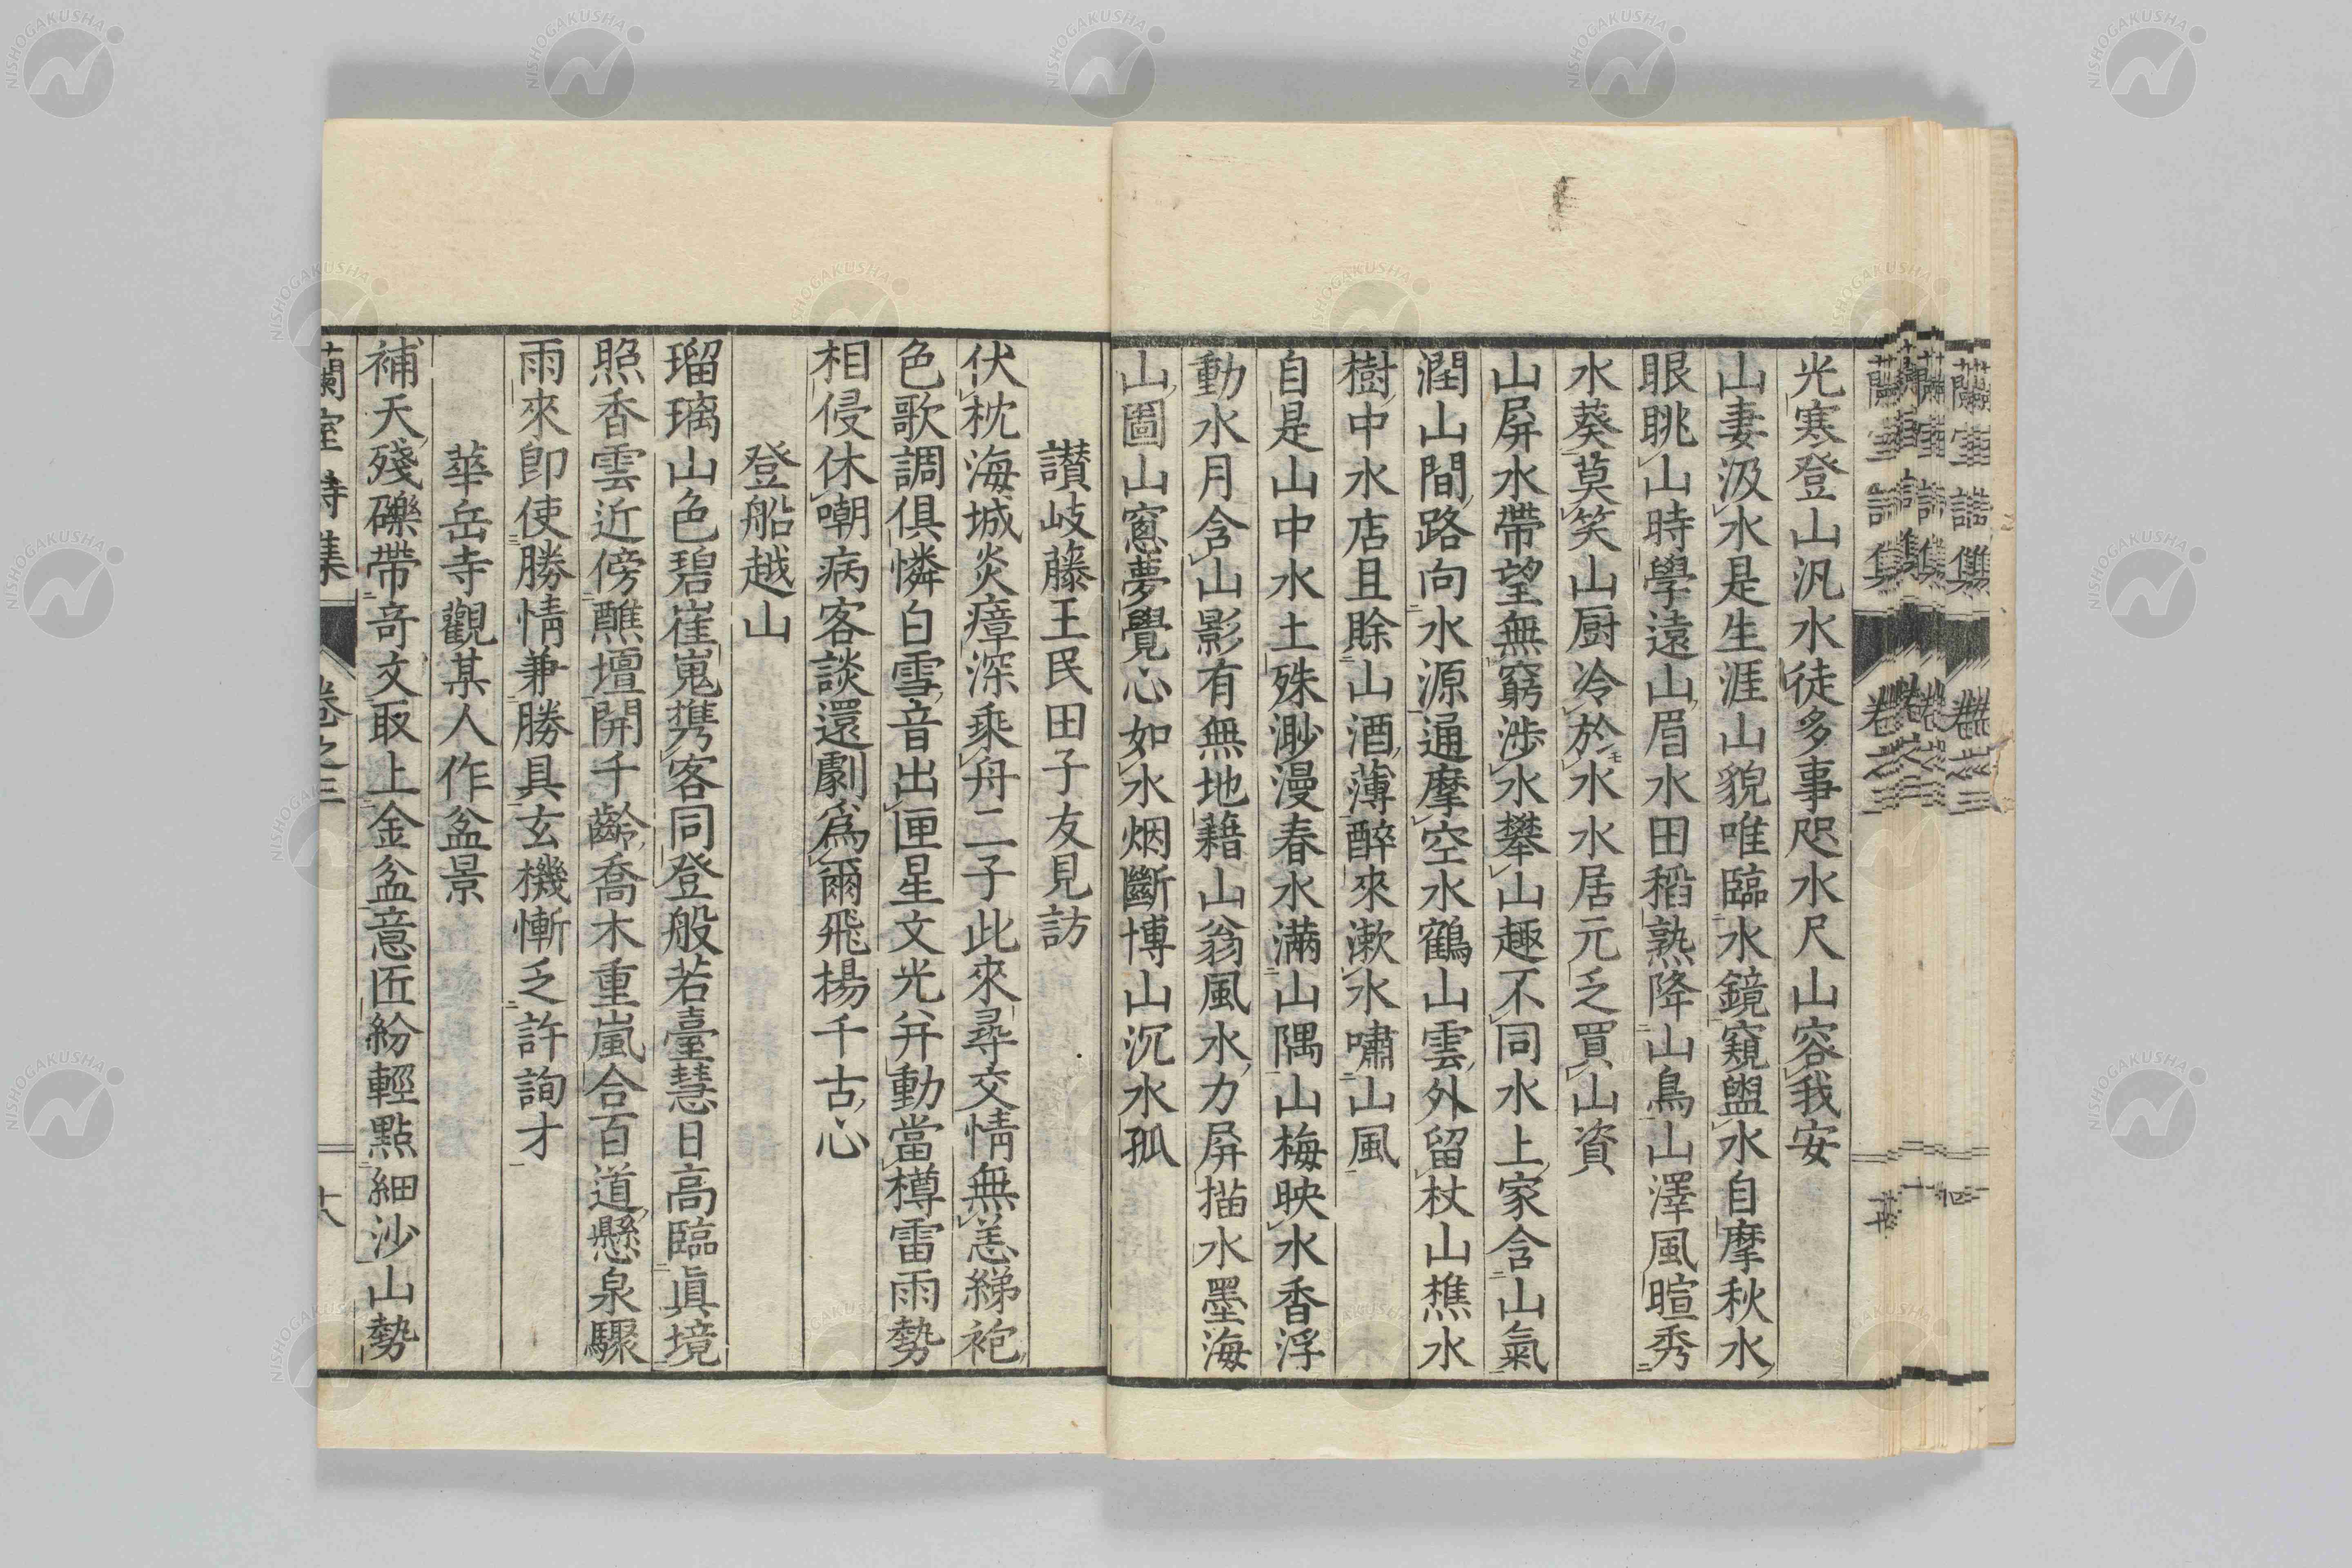 光寒登山汎水徒多事咫水尺山容我安
山妻汲水是生涯山貌唯臨水鏡窺盥水自摩秋水
眼眺山時學遠山眉水田稻熟降山鳥山澤風暄秀
水葵莫笑山厨冷於水水居元乏買山資
山屏水帶望無窮渉水攀山趣不同水上家含山氣
潤山間路向水源通摩空水鶴山雲外留杖山樵水
樹中水店且賒山酒薄醉來漱水嘯山風
自是山中水土殊渺漫春水滿山隅山梅映水香浮
動水月含山影有無地籍山翁風水力屏描水墨海
山圖山窻夢覺心如水烟斷博山沉水孤
讃岐藤王民田子友見訪
伏枕海城炎瘴深乘舟二子此來尋交情無恙綈袍
色歌調俱憐白雪音出匣星文光并動當樽雷雨勢
相侵休嘲病客談還劇爲爾飛揚千古心
登船越山
瑠璃山色碧崔嵬携客同登般若臺慧日高臨眞境
照香雲近傍醮壇開千齡喬木重嵐合百道懸泉驟
雨來卽使勝情兼勝具玄機慚乏許詢才
華岳寺觀某人作盆景
補天殘礫帶奇文取上金盆意匠紛輕點細沙山勢
蘭室詩集 卷之三 十八